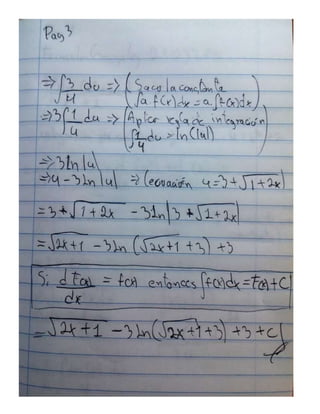 Pag 3
⇒ ∫3/u du ⇒ (Saco la constante
∫a f(x)dx = a∫f(x)dx)
⇒ 3∫1/u du ⇒ (Aplicar regla de integración
∫1/u du = ln(|u|)
⇒ 3ln|u|
⇒ u - 3ln|u| ⇒ (ecuación u = 3+√1+2x)
= 3+√1+2x - 3ln|3+√1+2x|
= √2x+1 - 3ln(√2x+1 +3) +3
Si dF(x)/dx = f(x) entonces ∫f(x)dx = F(x)+C
= √2x+1 - 3ln(√2x+1+3) +3+C